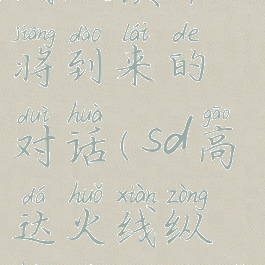 jiāng dào lái de
将到来的
duì huà gāo
对话(sd高
dá huǒ xiàn zòng
达火线纵